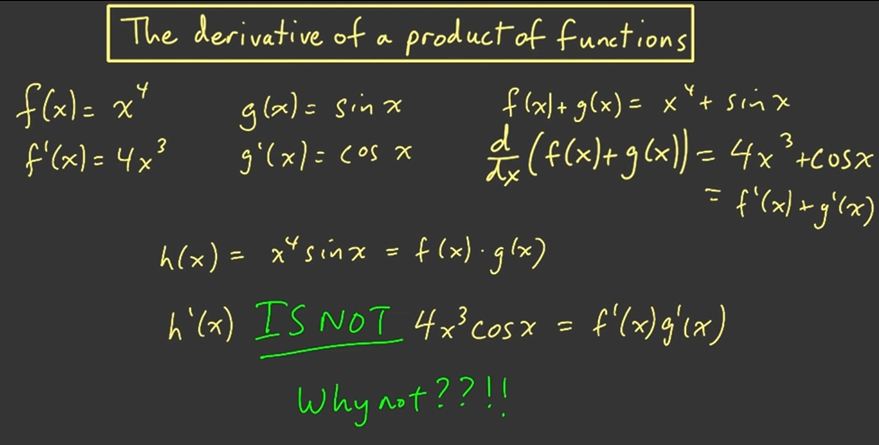 The derivative of a product of functions
f(x) = x⁴
g(x) = sin x
f(x) + g(x) = x⁴ + sin x
f'(x) = 4x³
g'(x) = cos x
d/dx (f(x) + g(x)) = 4x³ + cos x
= f'(x) + g'(x)
h(x) = x⁴ sin x = f(x) · g(x)
h'(x) IS NOT 4x³ cos x = f'(x) g'(x)
Why not??!!